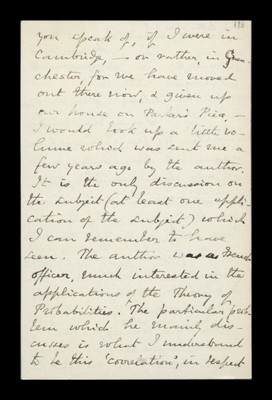 you speak of, if I were in
Cambridge, – or rather, in Gran
chester, for we have moved
out there now, & given up
our house on Parker's Piece, –
I would look up a little vo-
lume which was sent me a
few years ago by the author.
It is the only discussion on
the subject (at least one appli-
cation of the subject) which
I can remember to have
seen. The author was a French
officer, much interested in the
applications of the Theory of
Probabilities. The particular prob
lem which he mainly dis-
cusses is what I understand
to be this 'correlation', in respect